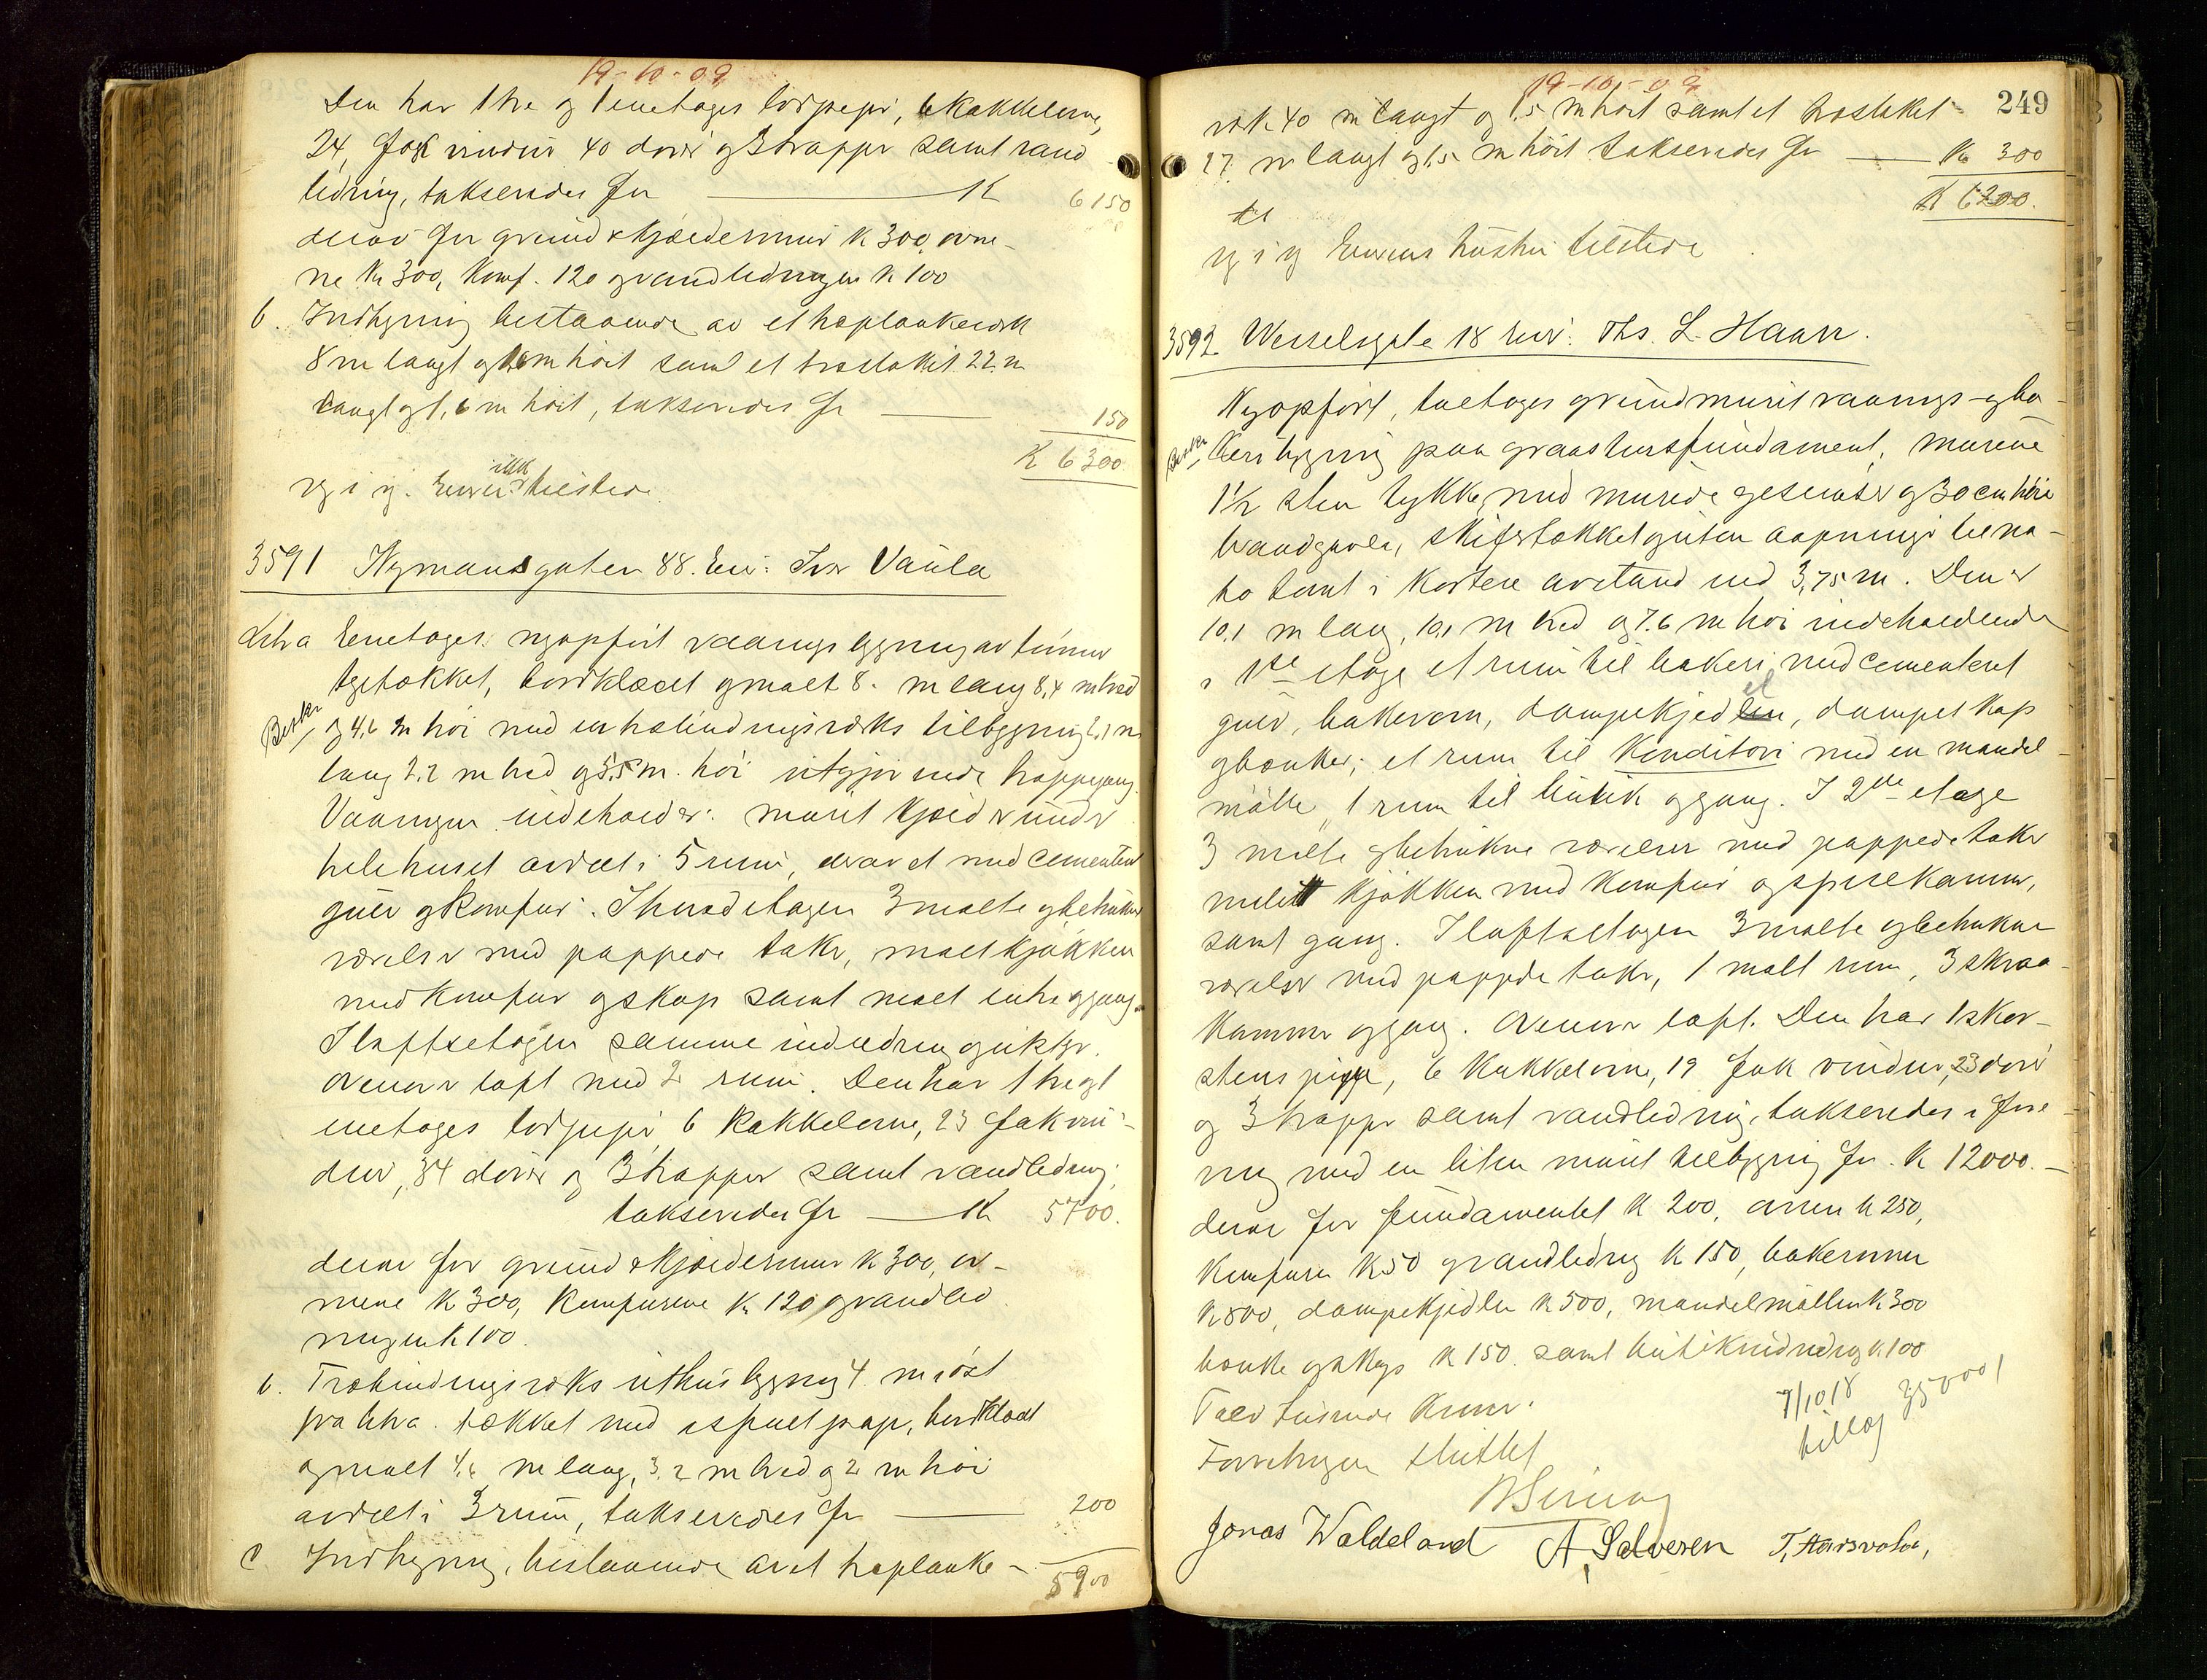 19-10-09
Den har 1 tre og 1 enetages lodpipe, 6 kakkelovne,
24 fag vinduer 40 dører og 3 trapper samt vand
ledning, takseredes for — K 6150
derav for grund & kjældermur K 300, ovne-
ne K 300, Komf. 120 og vandledningen K 100
b. Indhegning bestaaende av et træplankeverk
8 m langt og 1,6 m høit samt et træstakit 22 m
langt og 1,6 m høit, takseredes for — 150
K 6300.
ikke
Eieren tilstede.
3591 Nymansgaten 88. Eier: Iver Vaula
Litra a Enetages nyopført vaanings bygning av tømmer
Besk.
tegltækket, bordklædt og malt 8. m lang 8,4 m bred
og 4,6 m høi med en træbindingsværks tilbygning 2,1 m
lang 2,2 m bred og 5,5 m. høi utgjørende trappegang.
Vaaningen indeholder: muret kjælder under
hele huset avdelt i 5 rum, derav et med cementeret
gulv og komfur. I hovedetagen 3 malte og betrukne
værelser med pappede taker, malt kjøkken
med komfur og skap samt malt entre og gang.
I loftsetagen samme indredning og utstyr.
Øverst er loft med 2 rum. Den har 1 tre og 1
enetages lodpipe 6 kakkelovne, 23 fak vin-
duer, 34 dører og 3 trapper samt vandledning,
takseredes for — K 5700.
derav for grund & kjældermur K 300, ov-
nene K 300, Komfurene K 120 og vandled
ningen K 100.
b. Træbindingsværks uthusbygning 4 m øst
fra litra a. tækket med asfalt pap, bordklædt
og malt 4,6 m lang, 3,2 m bred og 2 m høi
avdelt i 3 rum, takseredes for — 200
c Indhegning, bestaaende av et træplanke- 5900
19-10-09
249
verk 40 m langt og 1,5 m høit samt et træstakit
27 m langt og 1,5 m høit takseredes for — K 300
K 6200.
Eierens hustru tilstede.
3592 Wesselsgate 18 Eier: Ths. L. Haarr.
Nyopført, toetages grundmuret vaanings- og ba-
Besk.
keribygning paa graastensfundament, murene
1½ sten tykke, med murede gesimser og 30 cm høie
brandgavle, skifertækket og uten aapninger til na-
bo tomt i kortere avstand end 3,75 m. Den er
10,1 m lang, 10,1 m bred og 7,6 m høi indeholdende
i 1ste etage et rum til bakeri med cementeret
gulv, bakerovn, dampkjedel, dampskap
og bænker; et rum til Konditori med en mandel-
mølle, 1 rum til butik og gang. I 2den etage
3 malte og betrukne værelser med pappede taker
malt kjøkken med komfur og spisekammer,
samt gang. I loftsetagen 3 malte og betrukne
værelser med pappede taker, 1 malt rum, 3 skraa-
kammer og gang. Øverst er loft. Den har 1 skor-
stenspipe, 6 kakkelovne, 19 fak vinduer, 23 dører
og 3 trapper samt vandledning, takseredes i fore-
ning med en liten muret tilbygning for K 12000.—
derav for fundamentet K 200, ovnen K 250,
Komfuren K 50 og vandledning K 150, bakerovnen
K 800, dampkjedlen K 500, mandelmøllen K 300
bænke og skap K 150. samt butikindredning K 100
Tolv tusende Kroner.
7/10 18
tillæg 35000
Forretningen sluttet
Jonas Waldeland A. Salvesen T. Aarsvold,